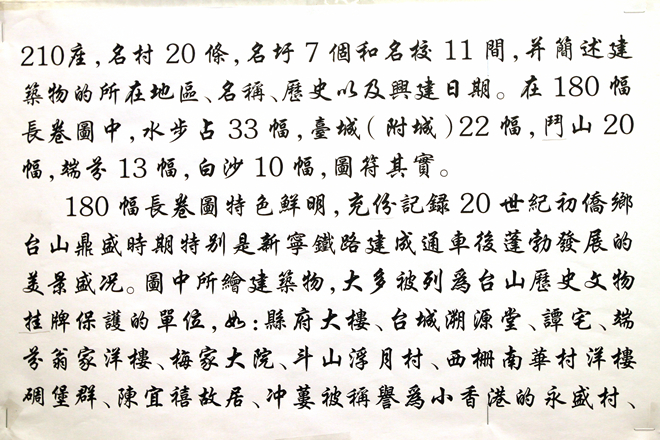 210座，名村 20 條，名圩 7 個和名校 11 間，并簡述建
築物的所在地區、名稱、歷史以及興建日期。在 180 幅
長卷圖中，水步占 33 幅，臺城（附城）22 幅，鬥山 20
幅，端芬 13 幅，白沙 10 幅，圖符其實。
180 幅長卷圖特色鮮明，充份記録 20 世紀初僑鄉
台山鼎盛時期特别是新寧鐵路建成通車後蓬勃發展的
美景盛况。圖中所繪建築物，大多被列爲台山歷史文物
挂牌保護的單位，如：縣府大樓、台城溯源堂、譚宅、端
芬翁家洋樓、梅家大院、斗山浮月村、西栅南華村洋樓
碉堡群、陳宜禧故居、冲蔞被稱譽爲小香港的永盛村、